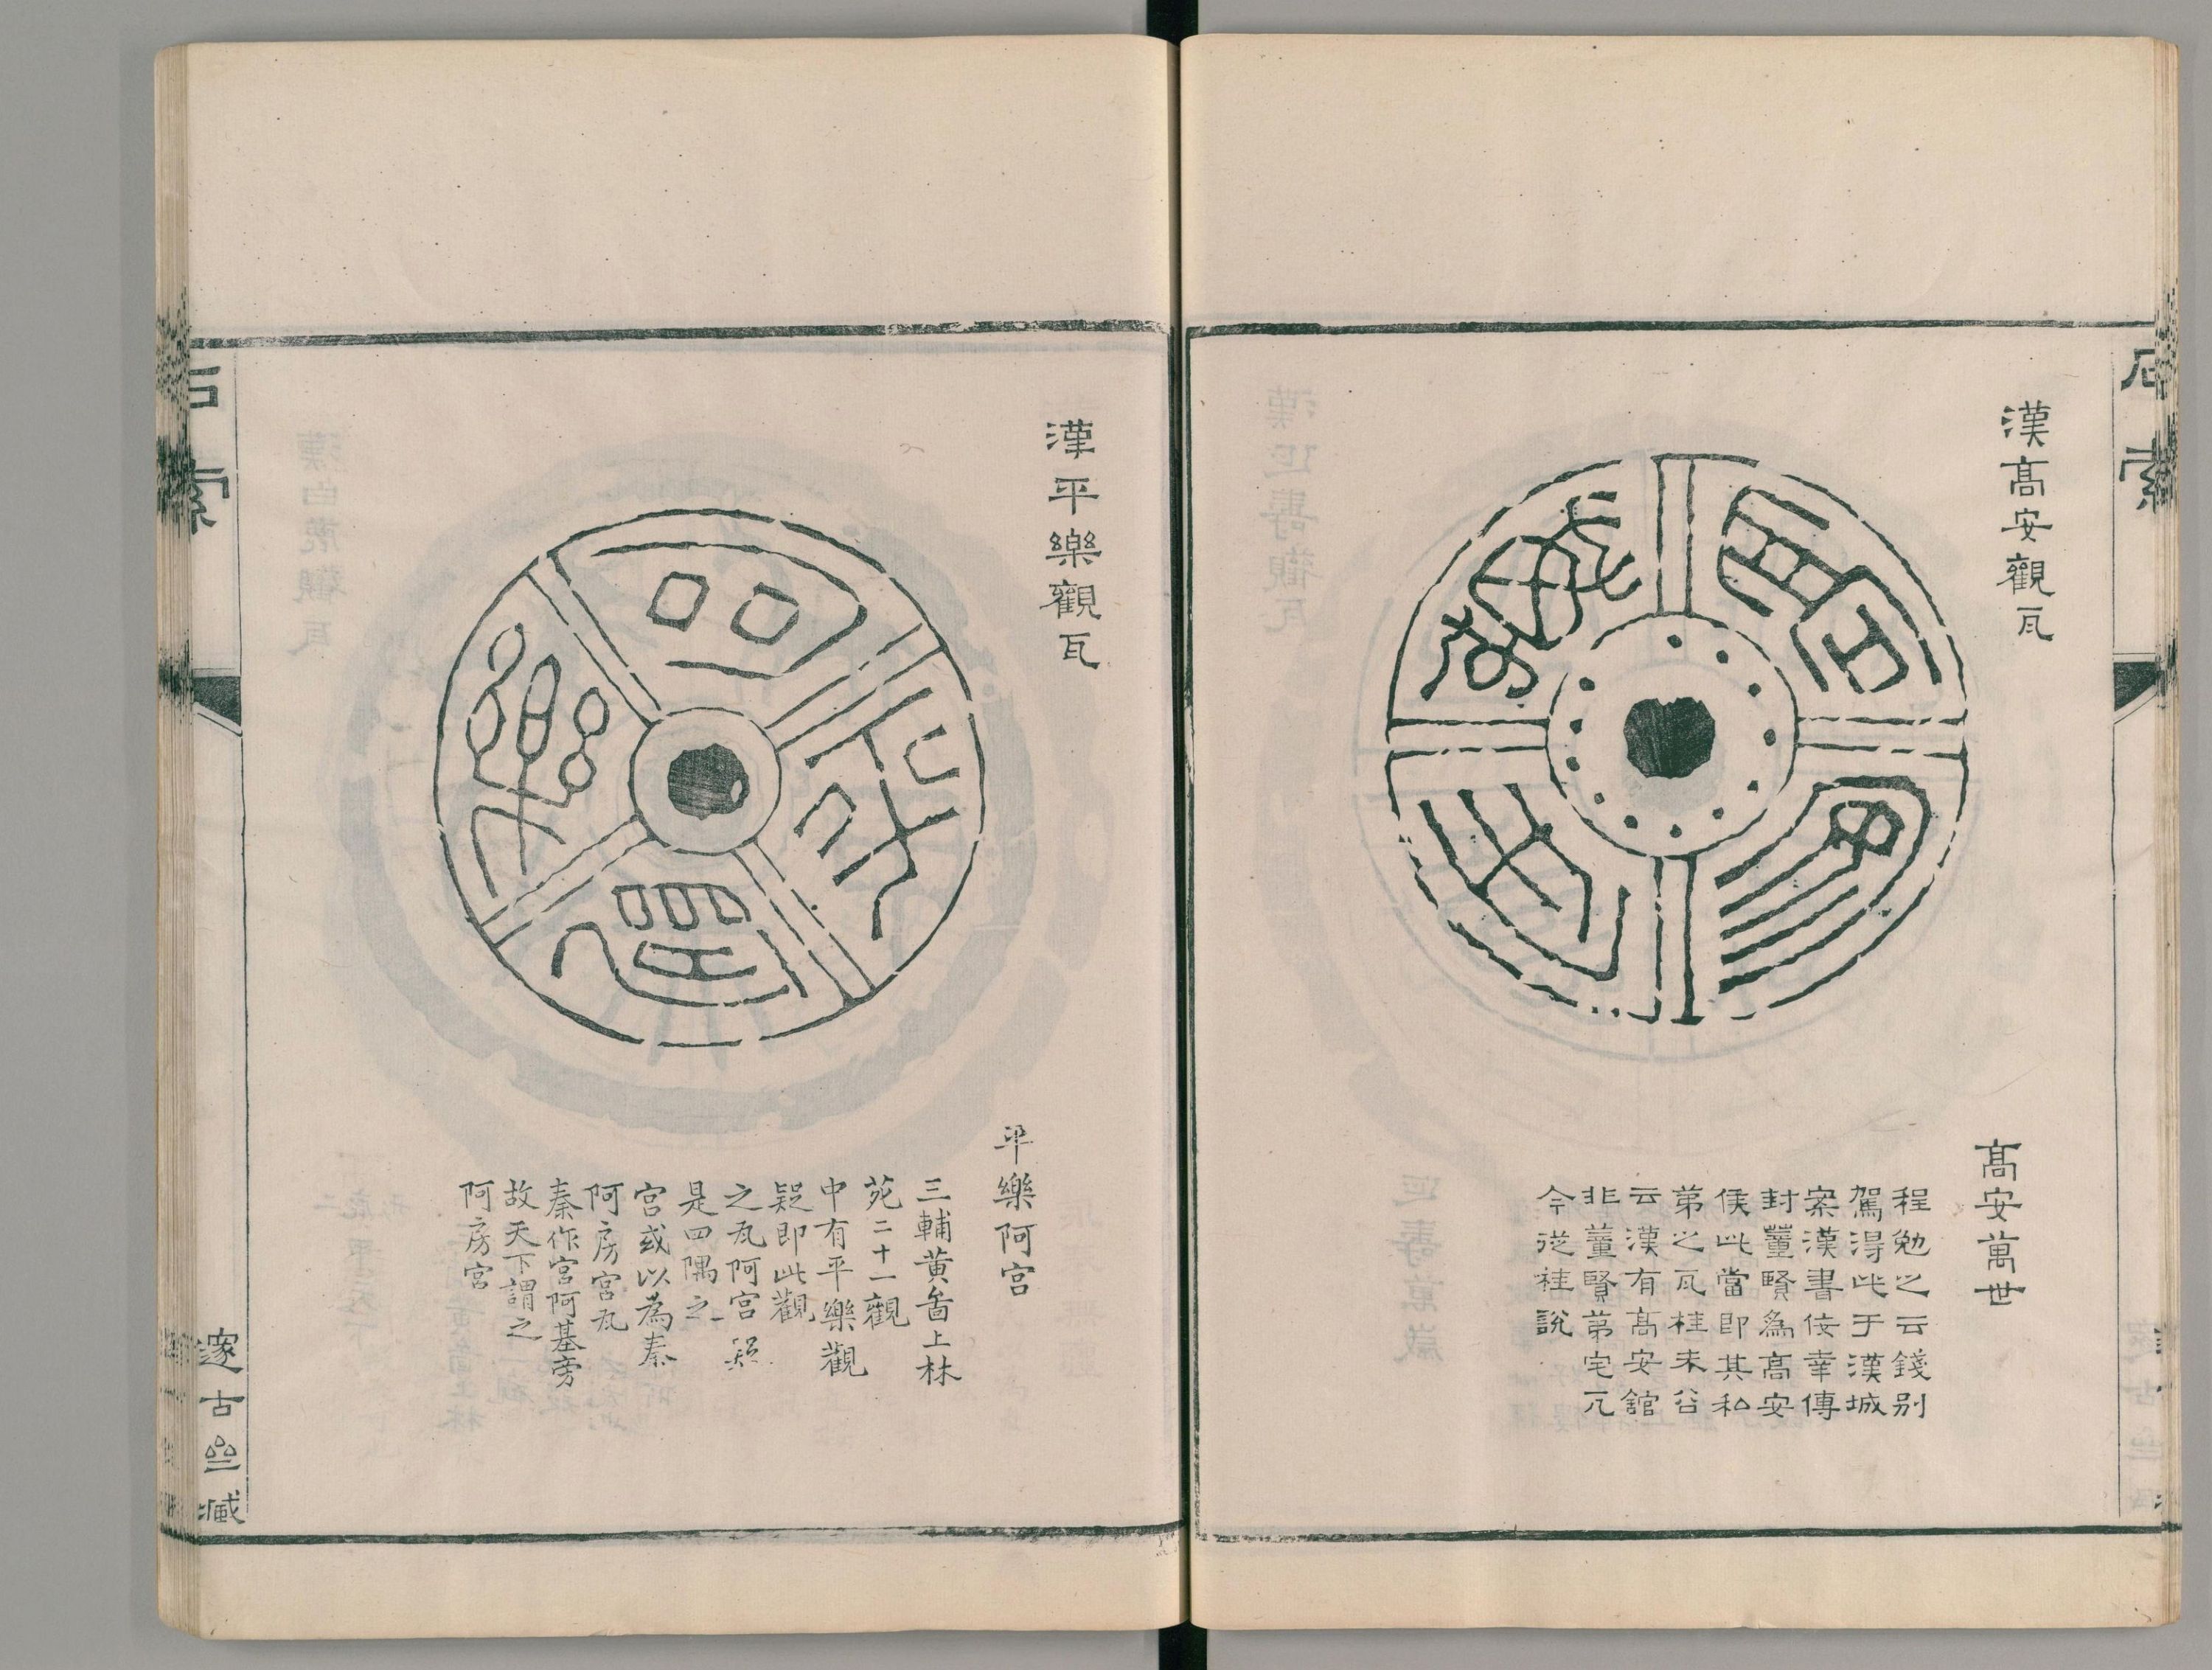 石索
漢高安觀瓦
高安萬世
程勉之云錢別
駕得此于漢城
案漢書佞幸傳
封董賢為高安
侯此當即其私
第之瓦桂未谷
云漢有高安館
非董賢第宅瓦
今從桂說
漢平樂觀瓦
平樂阿宮
三輔黃啚上林
苑二十一觀
中有平樂觀
疑即此觀
之瓦阿宮疑
是四隅之
宮或以為秦
阿房宮瓦
秦作宮阿基旁
故天下謂之
阿房宮
石索
邃古齋藏